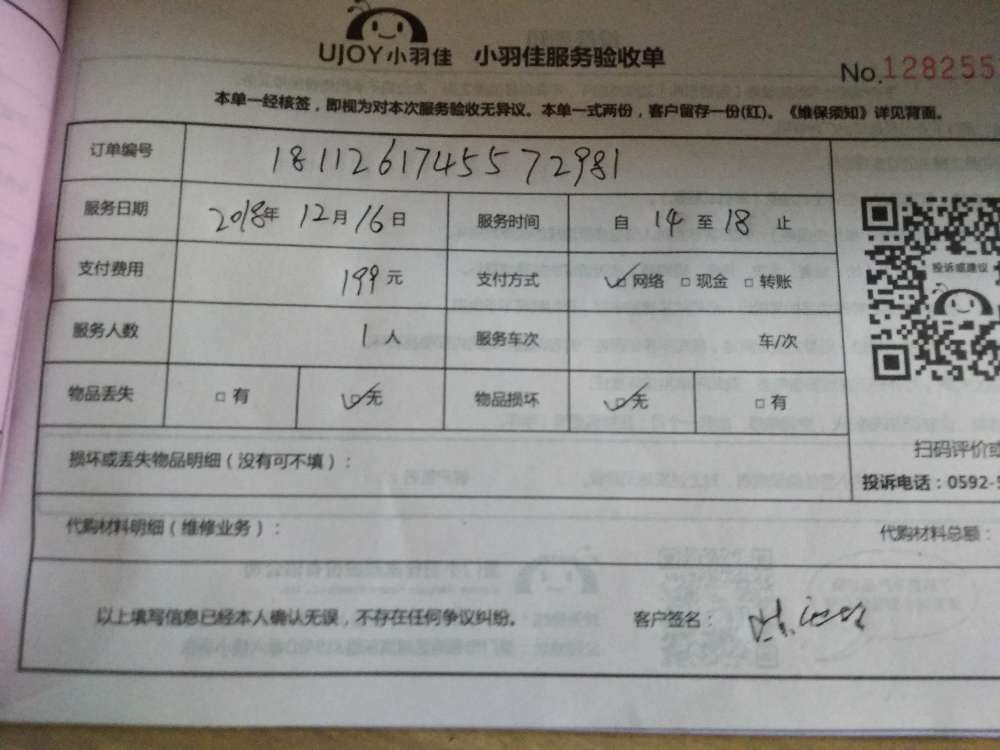 UJOY小羽佳 小羽佳服务验收单
No.128255
本单一经核签，即视为对本次服务验收无异议。本单一式两份，客户留存一份(红)。《维保须知》详见背面。
订单编号 1811261745572981
服务日期 2018年 12月16日 服务时间 自 14 至 18 止
支付费用 199元 支付方式 ☑网络 □现金 □转账
投诉或建议
服务人数 1人 服务车次 车/次
物品丢失 □有 ☑无 物品损坏 ☑无 □有
损坏或丢失物品明细（没有可不填）：
扫码评价或
投诉电话：0592-5
代购材料明细（维修业务）：
代购材料总额：
以上填写信息已经本人确认无误，不存在任何争议纠纷。 客户签名：